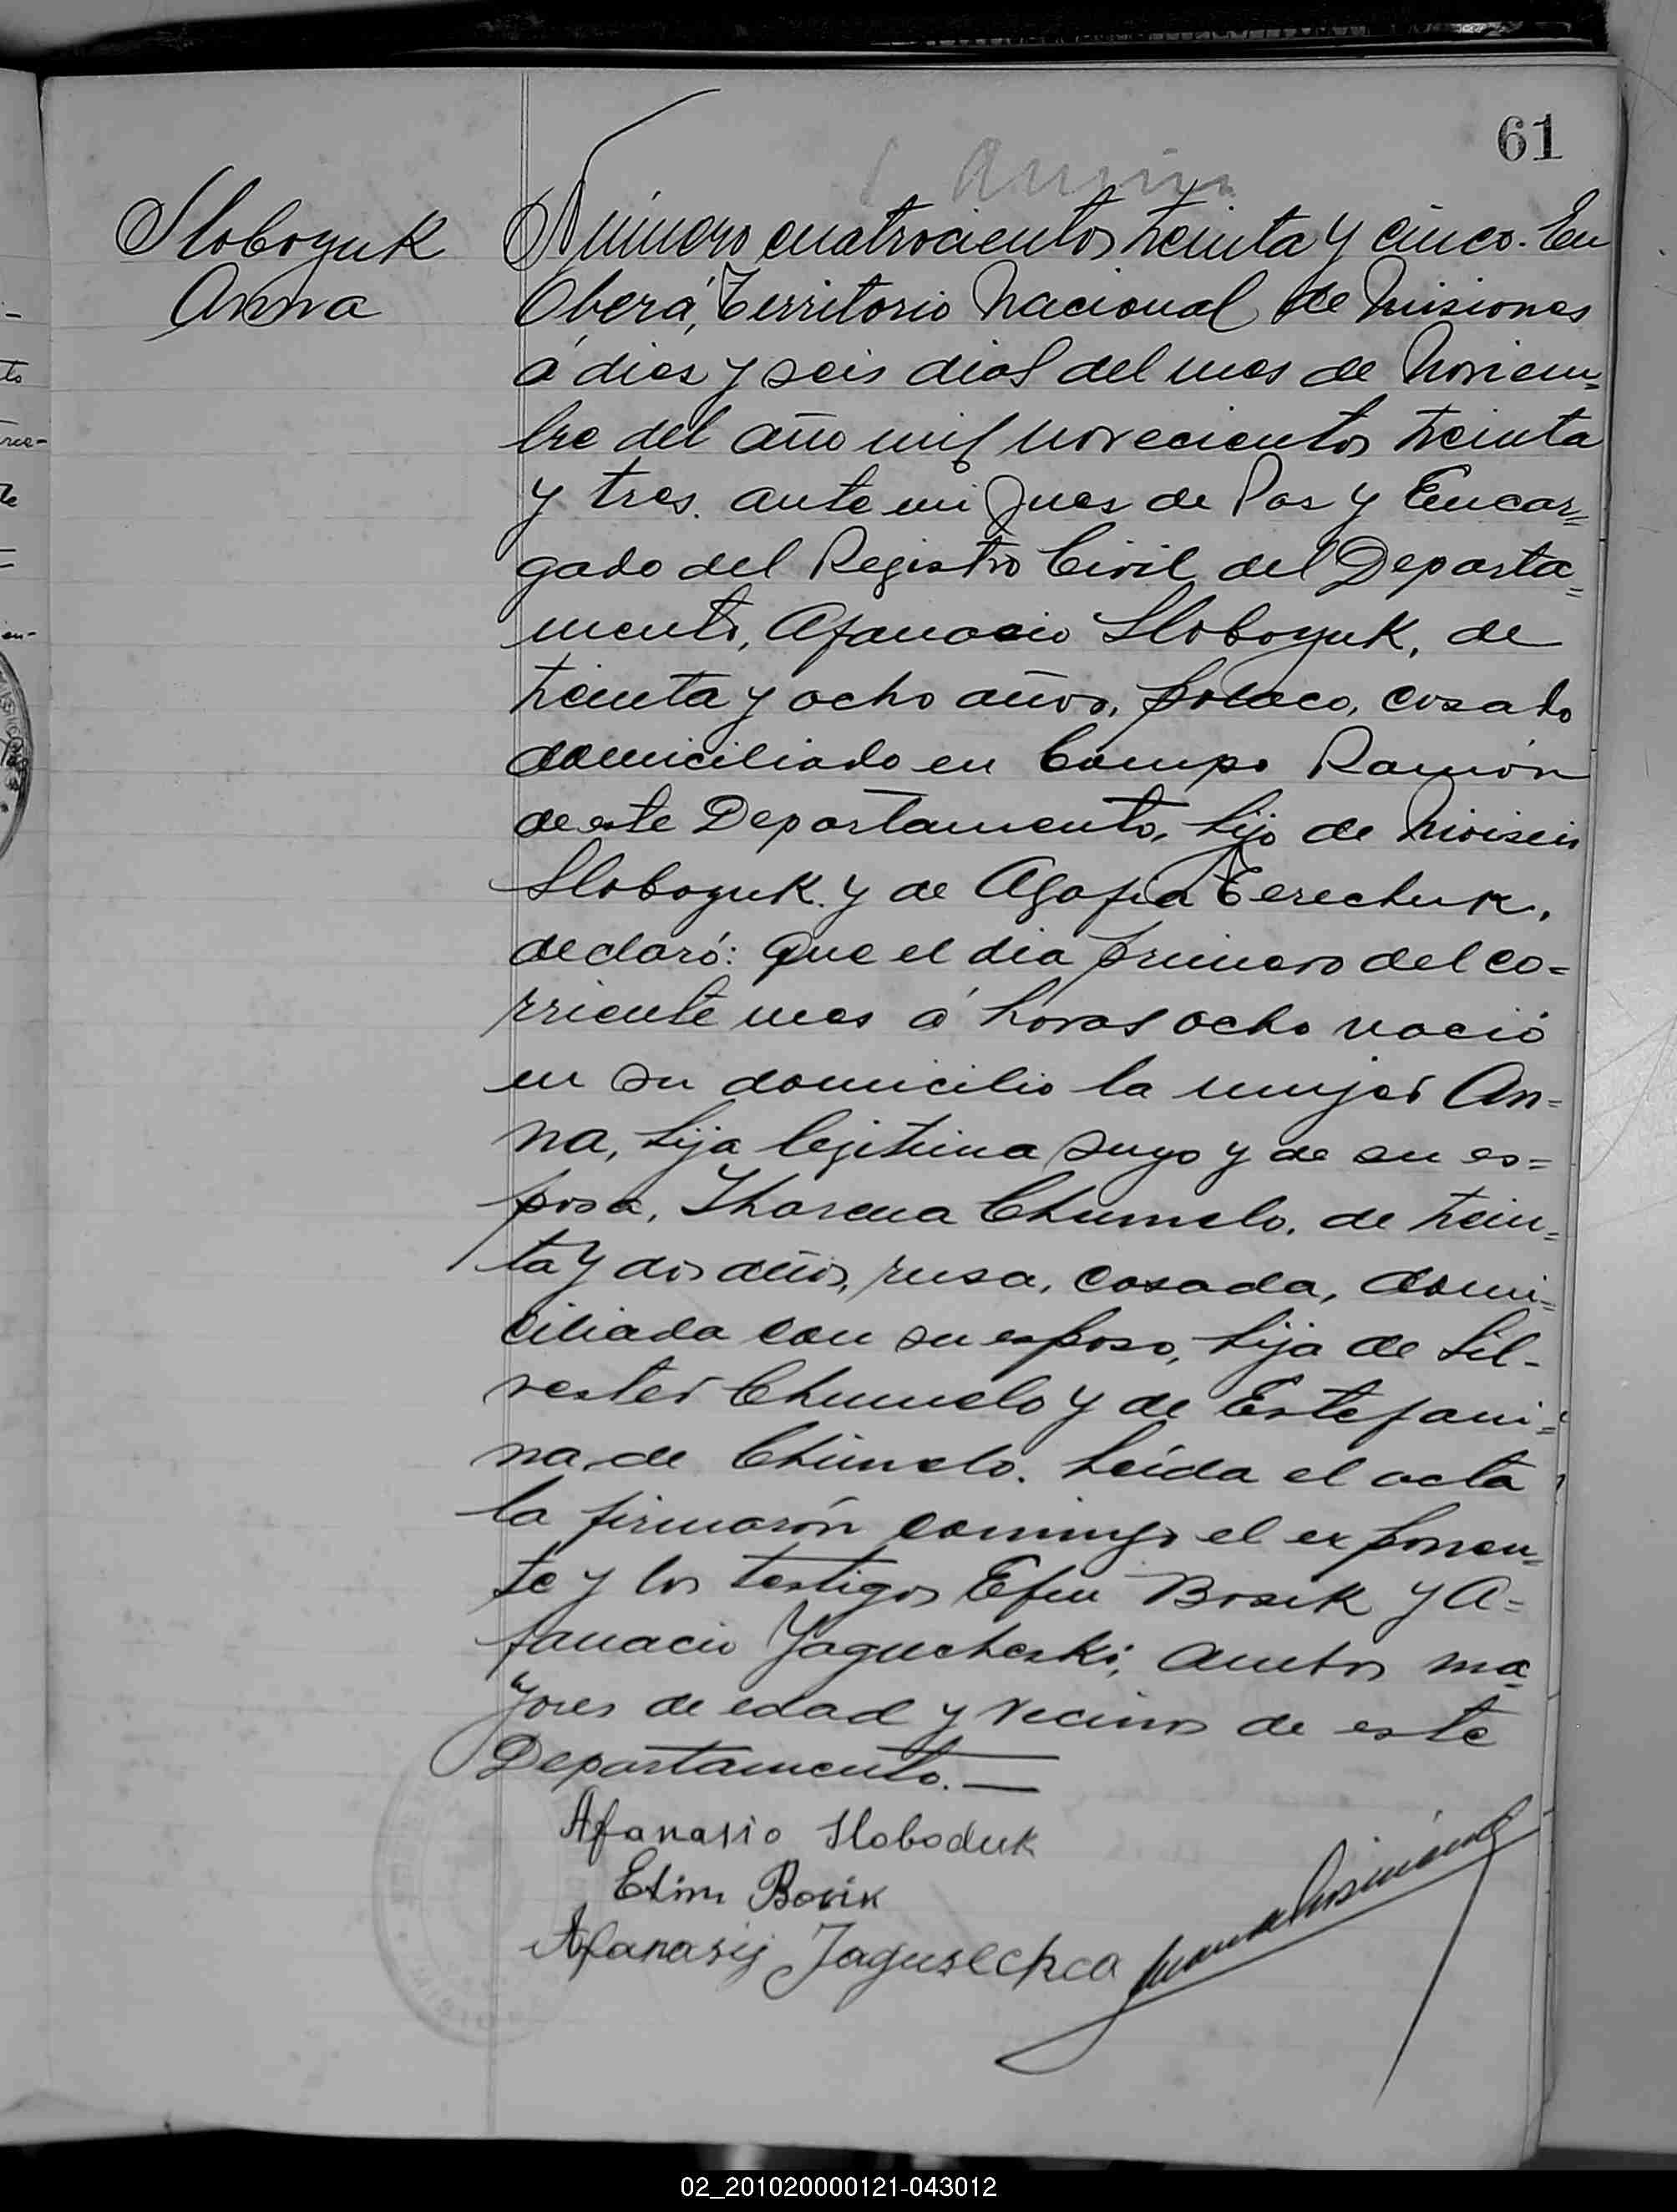 61
Sloboguk
Anna
Número cuatrocientos treinta y cinco. En
Oberá, Territorio Nacional de Misiones
á dies y seis dias del mes de Noviem=
bre del año mil novecientos treinta
y tres. ante mi Jues de Pas y Encar=
gado del Registro Civil del Departa=
mento, Afanacio Sloboguk, de
treinta y ocho años, polaco, casado
domiciliado en Campo Ramón
de este Departamento, hijo de Moiseis
Sloboguk y de Agafia Terechuk,
declaró: Que el dia primero del co=
rriente mes á horas ocho nació
en su domicilio la mujer An=
na, hija legitima suya y de su es=
posa, Tharena Chumelo, de trein=
ta y dos años, rusa, casada, domi=
ciliada con su esposo, hija de Sil-
vester Chumelo y de Estefani=
na de Chumelo. Leída el acta
la firmarón conmigo el exponen=
te y los testigos Efin Bosik y A=
fanacio Jagucheski, ambos ma=
yores de edad y vecinos de este
Departamento.—
Afanasio Sloboduk
Efim Bosik
Afanasij Jagusechca
02_201020000121-043012